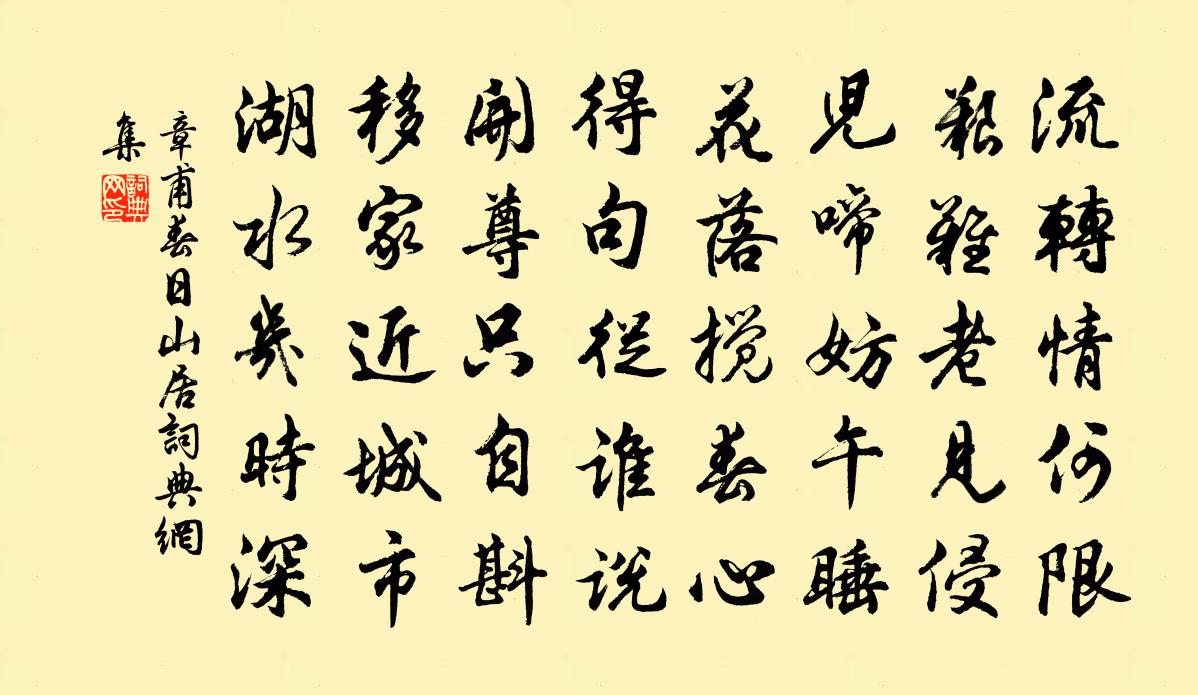 流轉情何限
艱難老見侵
兒啼妨午睡
花落攪春心
得句從誰說
開尊只自斟
移家近城市
湖水幾時深
章甫春日山居詞典網
集
詞典
网印